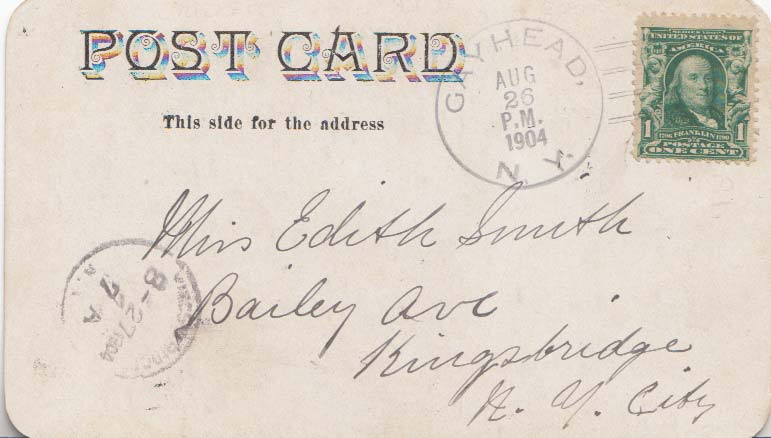 POST CARD
This side for the address
GAYHEAD,
AUG
26
P.M.
1904
N.Y.
SERIES 1902
UNITED STATES OF
AMERICA
1 FRANKLIN 1
POSTAGE
ONE CENT
Miss Edith Smith
Bailey Ave
Kingsbridge
N. Y. City
8-27
7 A
1904
N.Y.